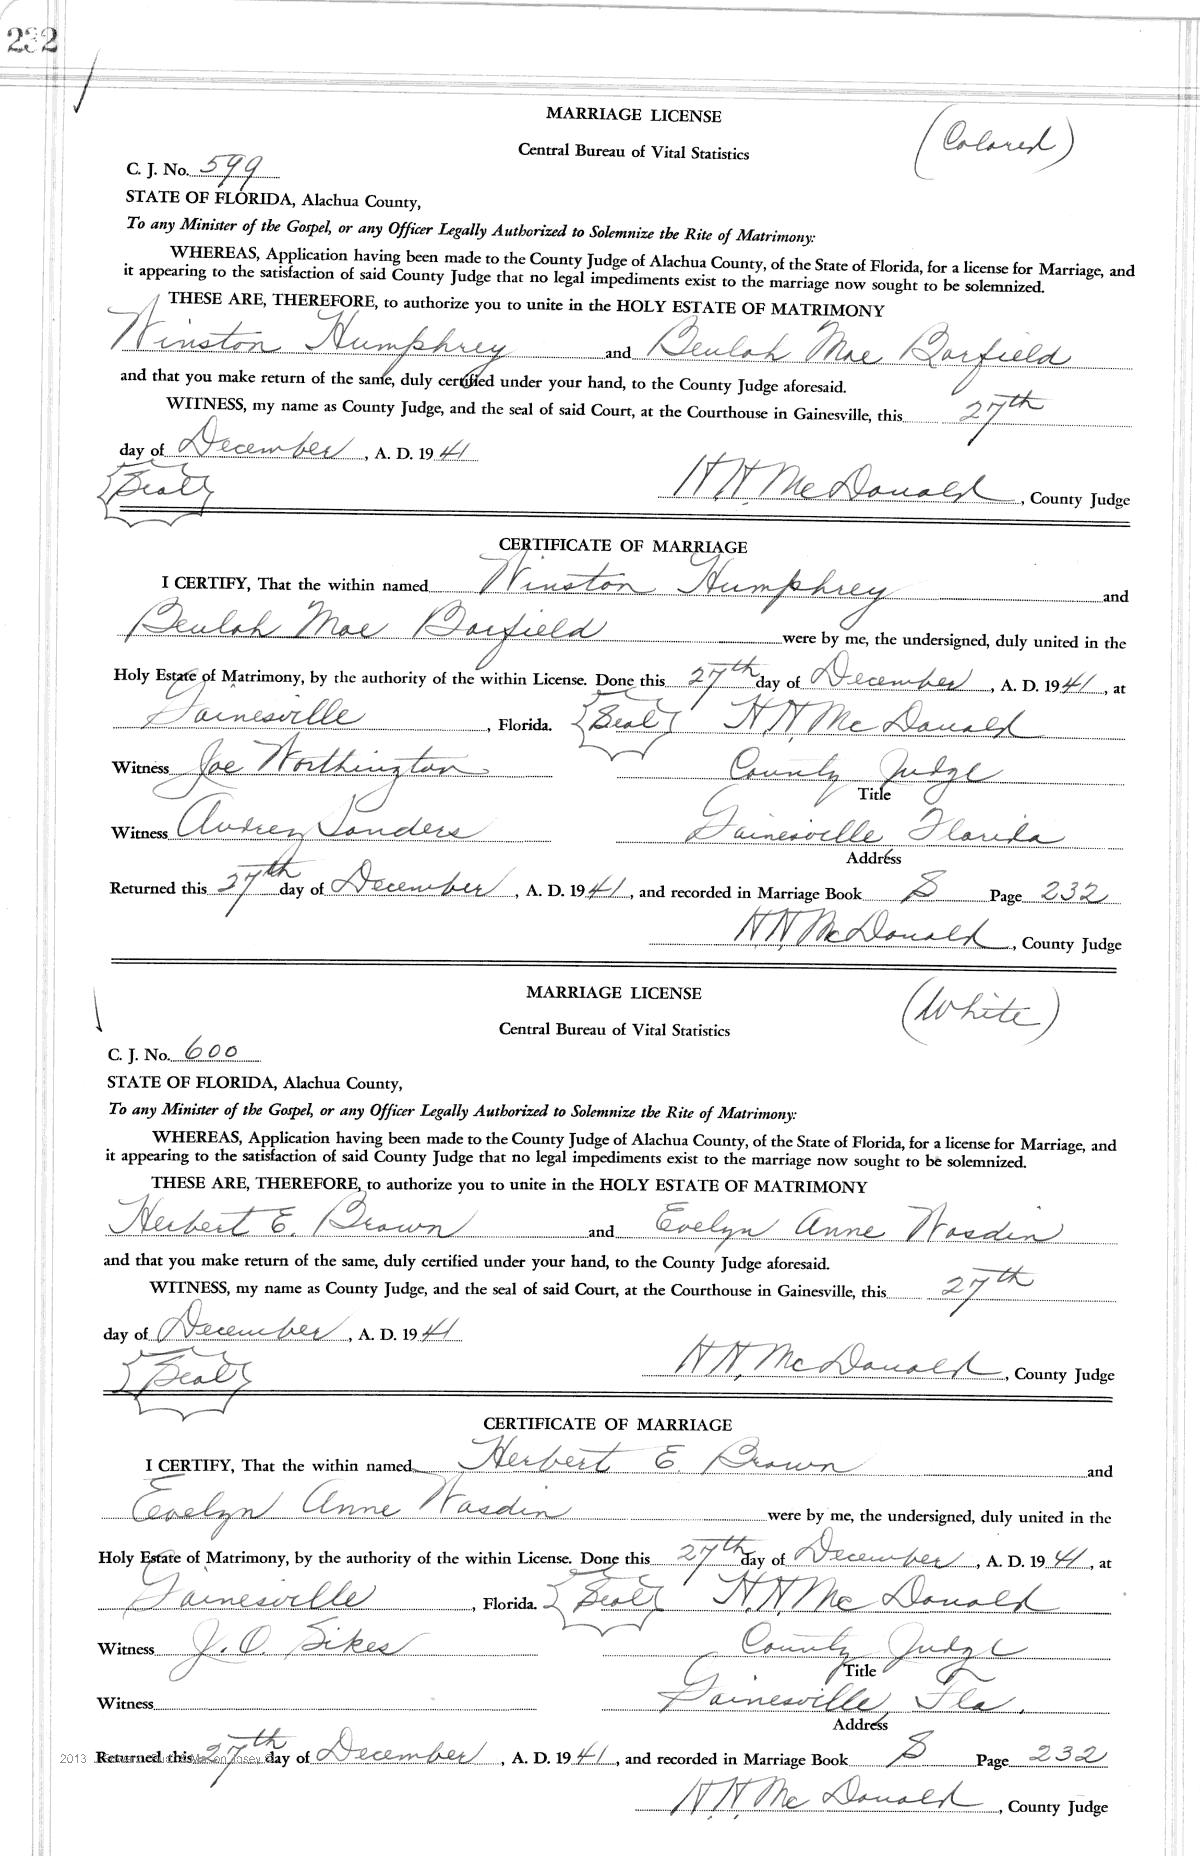 232
MARRIAGE LICENSE
(Colored)
Central Bureau of Vital Statistics
C. J. No. 599
STATE OF FLORIDA, Alachua County,
To any Minister of the Gospel, or any Officer Legally Authorized to Solemnize the Rite of Matrimony:
WHEREAS, Application having been made to the County Judge of Alachua County, of the State of Florida, for a license for Marriage, and
it appearing to the satisfaction of said County Judge that no legal impediments exist to the marriage now sought to be solemnized.
THESE ARE, THEREFORE, to authorize you to unite in the HOLY ESTATE OF MATRIMONY
Winston Humphrey and Beulah Mae Barfield
and that you make return of the same, duly certified under your hand, to the County Judge aforesaid.
WITNESS, my name as County Judge, and the seal of said Court, at the Courthouse in Gainesville, this 27th
day of December, A. D. 1941
(Seal) H.H. McDonald, County Judge
CERTIFICATE OF MARRIAGE
I CERTIFY, That the within named Winston Humphrey and
Beulah Mae Barfield were by me, the undersigned, duly united in the
Holy Estate of Matrimony, by the authority of the within License. Done this 27th day of December, A. D. 1941, at
Gainesville, Florida. (Seal) H.H. McDonald
Witness Joe Worthington County Judge
Title
Witness Audrey Sanders Gainesville Florida
Address
Returned this 27th day of December, A. D. 1941, and recorded in Marriage Book S Page 232
H.H. McDonald, County Judge
MARRIAGE LICENSE
(White)
Central Bureau of Vital Statistics
C. J. No. 600
STATE OF FLORIDA, Alachua County,
To any Minister of the Gospel, or any Officer Legally Authorized to Solemnize the Rite of Matrimony:
WHEREAS, Application having been made to the County Judge of Alachua County, of the State of Florida, for a license for Marriage, and
it appearing to the satisfaction of said County Judge that no legal impediments exist to the marriage now sought to be solemnized.
THESE ARE, THEREFORE, to authorize you to unite in the HOLY ESTATE OF MATRIMONY
Herbert E. Brown and Evelyn Anne Wasdin
and that you make return of the same, duly certified under your hand, to the County Judge aforesaid.
WITNESS, my name as County Judge, and the seal of said Court, at the Courthouse in Gainesville, this 27th
day of December, A. D. 1941
(Seal) H.H. McDonald, County Judge
CERTIFICATE OF MARRIAGE
I CERTIFY, That the within named Herbert E. Brown and
Evelyn Anne Wasdin were by me, the undersigned, duly united in the
Holy Estate of Matrimony, by the authority of the within License. Done this 27th day of December, A. D. 1941, at
Gainesville, Florida. (Seal) H.H. McDonald
Witness J. O. Sikes County Judge
Title
Witness Gainesville, Fla.
Address
2013
Returned this 27th day of December, A. D. 1941, and recorded in Marriage Book S Page 232
H.H. McDonald, County Judge